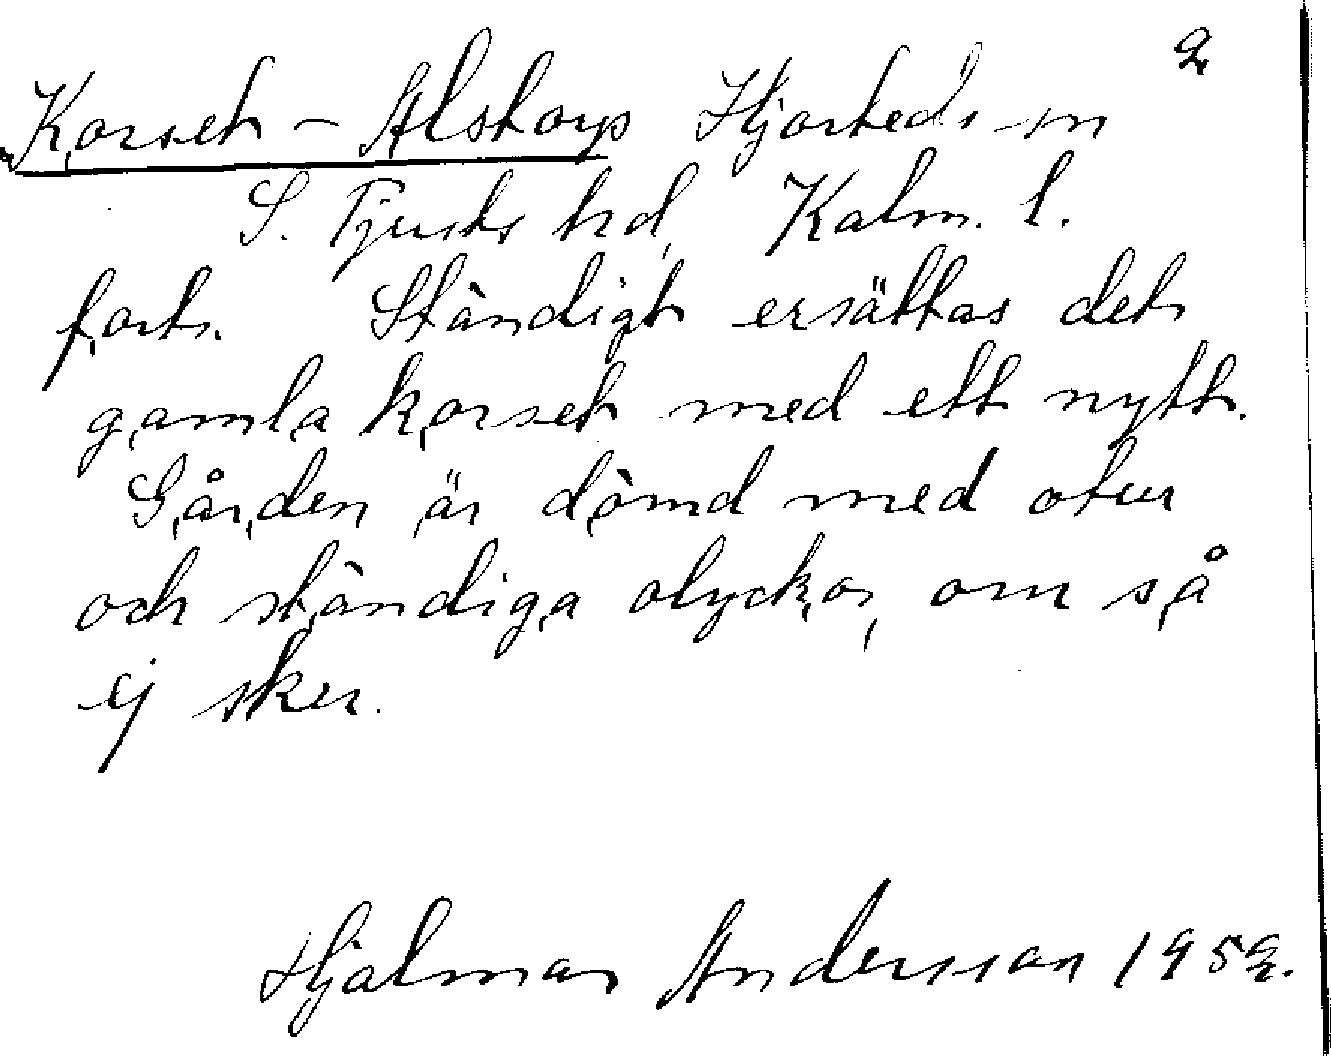 2
Korset - Alstorp Hjorteds sn
S. Tjusts hd, Kalm. l.
forts. Ständigt ersättas det
gamla korset med ett nytt.
Gården är dömd med otur
och ständiga olyckor, om så
ej sker.
Hjalmar Andersson 1952.